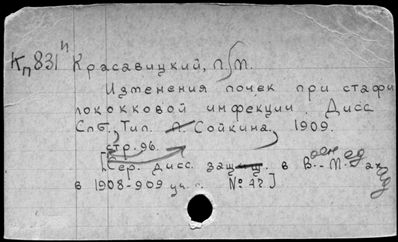 Кп 831 п Красавицкий, П. М.
Изменения почек при стафи
лококковой инфекции. Дисс.
Спб., Тип. П. Сойкина, 1909.
стр. 96.
[Сер. дисс. защищ. в Воен. Мед. ак.
в 1908-909 уч. г. № 42]